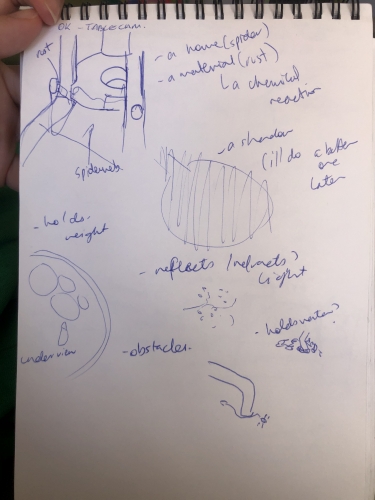 OK - TABLECAM.
rot
- a home (spider)
- a material (rust)
↳ a chemical
reaction
spiderweb
- a shadow
(ill do a better
one
later
- holds
weight
- reflects / refracts?
Light
underview
- obstacles.
- holds water?